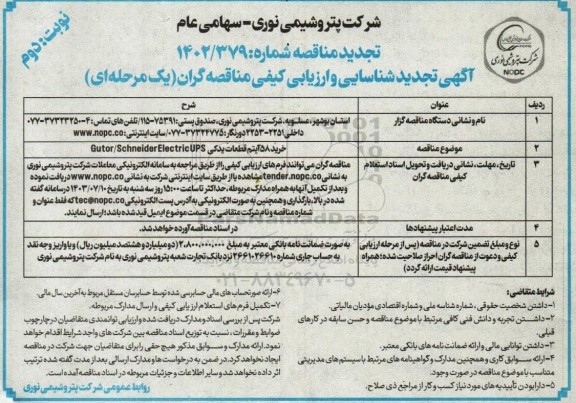 نوبت: دوم
شرکت پتروشیمی نوری - سهامی عام
تجدید مناقصه شماره: ۱۴۰۲/۳۷۹
آگهی تجدید شناسایی و ارزیابی کیفی مناقصه گران (یک مرحله ای)
شرکت پتروشیمی نوری
NOPC
ردیف عنوان شرح
۱ نام و نشانی دستگاه مناقصه گزار استان بوشهر، عسلویه، شرکت پتروشیمی نوری، صندوق پستی: ۷۵۳۹۱-۱۱۵ تلفن های تماس: ۴-۳۷۳۲۳۲۵۰-۰۷۷
داخلی ۲۲۵۱-۲۲۵۳ دورنگار: ۳۷۳۲۴۷۷۵-۰۷۷ سایت اینترنتی: www.nopc.co
۲ موضوع مناقصه خرید ۵۸ آیتم قطعات یدکی Gutor/Schneider Electric UPS
۳ تاریخ، مهلت، نشانی دریافت و تحویل اسناد استعلام
کیفی مناقصه گران
مناقصه گران می توانند فرم های ارزیابی کیفی را از طریق مراجعه به سامانه الکترونیکی معاملات شرکت پتروشیمی نوری
به نشانی tender.nopc.co مشاهده یا از طریق سایت اینترنتی شرکت به نشانی www.nopc.co دریافت نموده
و بعد از تکمیل آنها به همراه مدارک مربوطه، حداکثر تا ساعت ۱۵:۰۰ روز سه شنبه به تاریخ ۱۴۰۳/۰۷/۱۰ در سامانه گفته
شده در بالا، بارگذاری و همچنین به صورت الکترونیکی به آدرس پست الکترونیکی tec@nopc.co که فقط عنوان و
شماره مناقصه و نام شرکت متقاضی در قسمت موضوع ایمیل قید شده باشد؛ ارسال نمایند.
۴ مدت اعتبار پیشنهادها در اسناد مناقصه آورده خواهد شد.
۵ نوع و مبلغ تضمین شرکت در مناقصه (پس از مرحله ارزیابی
کیفی و دعوت از مناقصه گران احراز صلاحیت شده؛ همراه
پیشنهاد قیمت ارائه گردد)
به صورت ضمانت نامه بانکی معتبر به مبلغ ۲،۸۰۰،۰۰۰،۰۰۰ (دو میلیارد و هشتصد میلیون ریال) و یا واریز وجه نقد
به حساب جاری شماره ۲۶۶۱۰۲۶۶۱۰ نزد بانک تجارت شعبه پتروشیمی نوری به نام شرکت پتروشیمی نوری
شرایط متقاضی:
۱- داشتن شخصیت حقوقی، شماره شناسه ملی و شماره اقتصادی مؤدیان مالیاتی.
۲- داشتن تجربه و دانش فنی کافی مرتبط با موضوع مناقصه و حسن سابقه در کارهای
قبلی.
۳- داشتن توانایی مالی و ارائه ضمانت نامه های بانکی معتبر.
۴- ارائه سوابق کاری و همچنین مدارک و گواهینامه های مرتبط با سیستم های مدیریتی
متناسب با موضوع مناقصه در صورت وجود.
۵- دارا بودن تأییدیه های مورد نیاز کسب و کار از مراجع ذی صلاح.
۶- ارائه صورتحساب های مالی حسابرسی شده توسط حسابرسان مستقل مربوط به آخرین سال مالی.
۷- تکمیل فرم های استعلام ارزیابی کیفی و ارسال مدارک مربوطه.
شرکت پس از بررسی اسناد و مدارک دریافت شده و ارزیابی توانمندی متقاضیان در چارچوب
ضوابط و مقررات، نسبت به توزیع اسناد مناقصه بین شرکت های واجد شرایط اقدام خواهد
نمود. ارائه مدارک و سوابق مذکور هیچ حقی را برای متقاضیان جهت شرکت در مناقصه
ایجاد نخواهد کرد. در ضمن به درخواست ها و مدارک ارسالی بعد از مدت گفته شده ترتیب
اثر داده نخواهد شد و سایر اطلاعات و جزئیات مربوطه در اسناد مناقصه آمده است.
روابط عمومی شرکت پتروشیمی نوری
۰۲۱-۸۸۳۴۹۶۷۰-۵